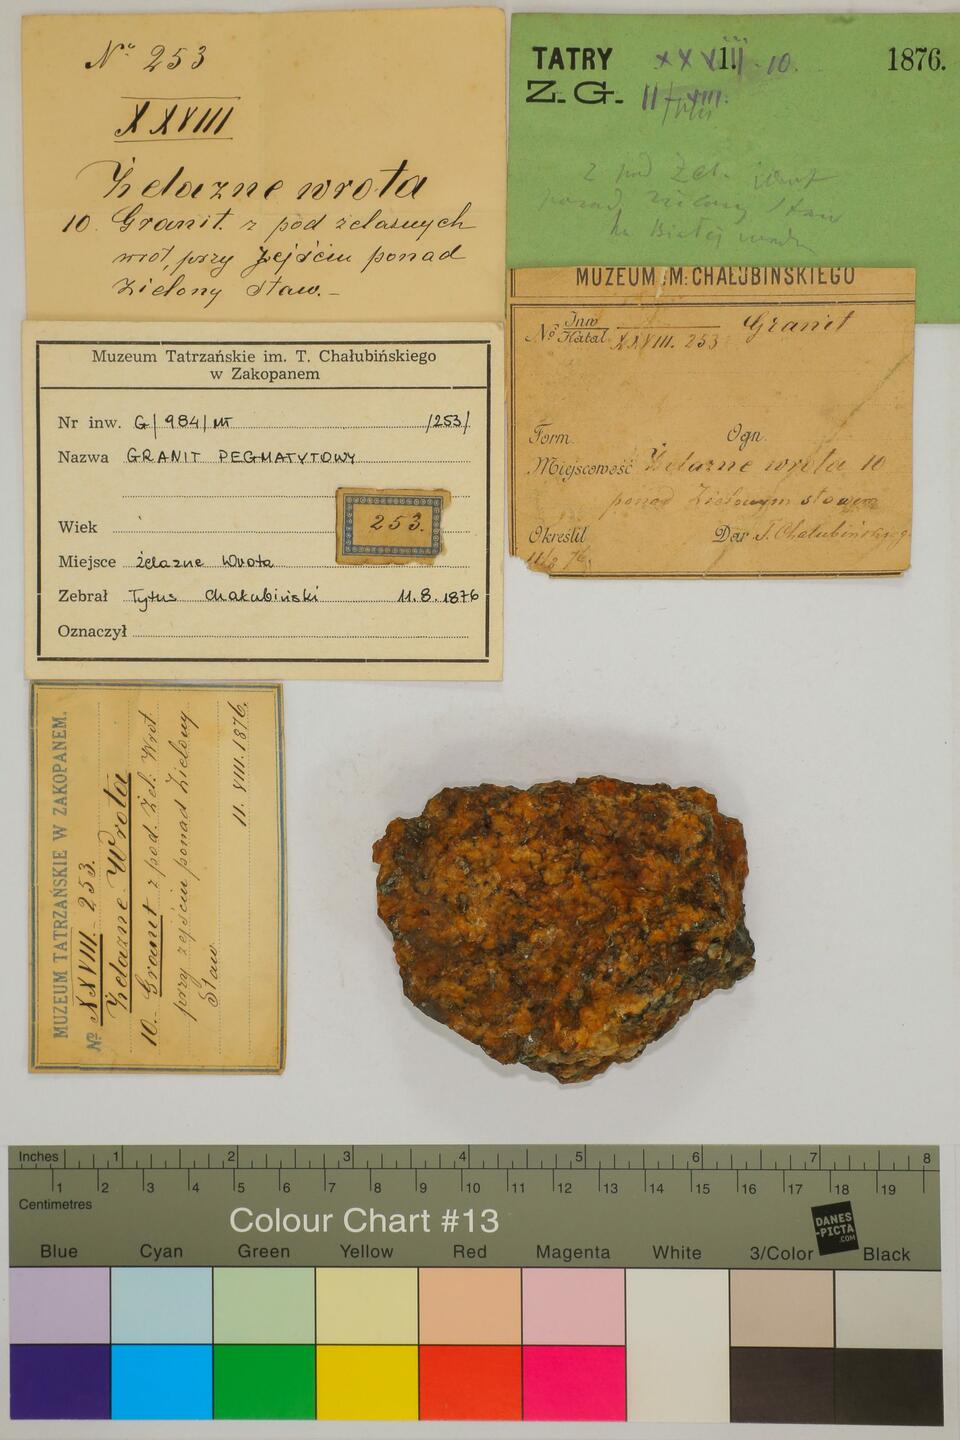 No 253
XXVIII
Żelazne wrota
10. Granit z pod żelaznych
wrót, przy zejściu ponad
Zielony Staw. –
TATRY XXVIII. 10. 1876.
Z. G. II
z pod Żel. wrot
ponad Zielony Staw
MUZEUM IM. CHAŁUBIŃSKIEGO
No Inw Granit
Katal XXVIII. 253
Form. Ogn.
Miejscowość Żelazne wrota 10
ponad Zielonym stawem
Określił Dar T. Chałubińskiego
11/8 76.
Muzeum Tatrzańskie im. T. Chałubińskiego
w Zakopanem
Nr inw. G/984/MT /253/
Nazwa GRANIT PEGMATYTOWY
253.
Wiek
Miejsce żelazne Wrota
Zebrał Tytus Chałubiński 11.8.1876
Oznaczył
MUZEUM TATRZAŃSKIE W ZAKOPANEM.
No XXVIII. 253.
Żelazne Wrota
10. Granit z pod. Żel. Wrót
przy zejściu ponad Zielony
Staw
11. VIII. 1876.
Inches 1 2 3 4 5 6 7 8
1 2 3 4 5 6 7 8 9 10 11 12 13 14 15 16 17 18 19
Centimetres
Colour Chart #13
DANES
-PICTA
.COM
Blue Cyan Green Yellow Red Magenta White 3/Color Black